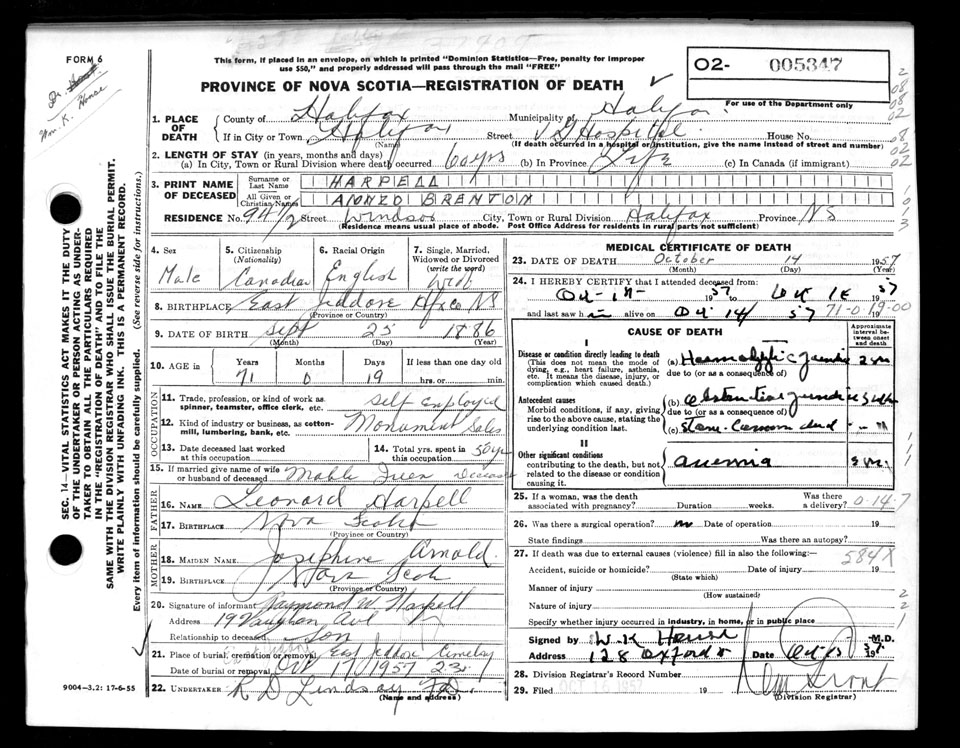 FORM 6
Dr.
Wm. K. House
This form, if placed in an envelope, on which is printed "Dominion Statistics—Free, penalty for improper
use $50," and properly addressed will pass through the mail "FREE"
PROVINCE OF NOVA SCOTIA—REGISTRATION OF DEATH
O2- 005347
For use of the Department only
1. PLACE OF DEATH
County of Halifax Municipality of Halifax
If in City or Town Halifax Street V G Hospital House No.
(Name) (If death occurred in a hospital or institution, give the name instead of street and number)
2. LENGTH OF STAY (in years, months and days)
(a) In City, Town or Rural Division where death occurred 60 yrs (b) In Province Life (c) In Canada (if immigrant)
3. PRINT NAME OF DECEASED
Surname or Last Name HARPELL
All Given or Christian Names ALONZO BRENTON
RESIDENCE No. 94 1/2 Street Windsor City, Town or Rural Division Halifax Province NS
(Residence means usual place of abode. Post Office Address for residents in rural parts not sufficient)
4. Sex Male
5. Citizenship (Nationality) Canadian
6. Racial Origin English
7. Single, Married, Widowed or Divorced (write the word) Wid
8. BIRTHPLACE East Jeddore Hfx Co NS
(Province or Country)
9. DATE OF BIRTH Sept 25 1886
(Month) (Day) (Year)
10. AGE in Years Months Days If less than one day old
71 0 19 hrs. or min.
OCCUPATION
11. Trade, profession, or kind of work as spinner, teamster, office clerk, etc. Self Employed
12. Kind of industry or business, as cotton-mill, lumbering, bank, etc. Monument Sales
13. Date deceased last worked at this occupation
14. Total yrs. spent in this occupation 50 yrs
15. If married give name of wife or husband of deceased Mable Deceased
FATHER
16. NAME Leonard Harpell
17. BIRTHPLACE Nova Scotia
(Province or Country)
MOTHER
18. MAIDEN NAME Josephine Arnold
19. BIRTHPLACE Nova Scotia
(Province or Country)
20. Signature of informant Raymond W. Harpell
Address 19 Vaughan Ave
Relationship to deceased Son
21. Place of burial, cremation or removal East Jeddore Cemetery
Date of burial or removal Oct 17/1957
22. UNDERTAKER R D Lindsay F.D.
(Name and address)
9004—3.2: 17-6-55
SEC. 14—VITAL STATISTICS ACT MAKES IT THE DUTY
OF THE UNDERTAKER OR PERSON ACTING AS UNDER-
TAKER TO OBTAIN ALL THE PARTICULARS REQUIRED
IN THE "REGISTRATION OF DEATH" AND TO FILE THE
SAME WITH THE DIVISION REGISTRAR WHO SHALL ISSUE THE BURIAL PERMIT.
WRITE PLAINLY WITH UNFADING INK. THIS IS A PERMANENT RECORD.
Every item of information should be carefully supplied. (See reverse side for instructions.)
MEDICAL CERTIFICATE OF DEATH
23. DATE OF DEATH October 14 1957
(Month) (Day) (Year)
24. I HEREBY CERTIFY that I attended deceased from:
1957
and last saw h alive on Oct 14 57 71-0
CAUSE OF DEATH
Approximate interval between onset and death
I
Disease or condition directly leading to death
(This does not mean the mode of dying, e.g., heart failure, asthenia, etc. It means the disease, injury, or complication which caused death.)
(a) Haemolytic Jaundice
due to (or as a consequence of)
Antecedent causes
Morbid conditions, if any, giving rise to the above cause, stating the underlying condition last.
(b) Obstructive jaundice
due to (or as a consequence of)
(c) Stone Common duct
II
Other significant conditions
contributing to the death, but not related to the disease or condition causing it.
anemia
25. If a woman, was the death associated with pregnancy? Duration weeks. Was there a delivery?
0-14-7
26. Was there a surgical operation? no Date of operation 19
State findings Was there an autopsy?
27. If death was due to external causes (violence) fill in also the following:—
584X
Accident, suicide or homicide? Date of injury 19
(State which)
Manner of injury
(How sustained)
Nature of injury
Specify whether injury occurred in industry, in home, or in public place
Signed by W. K House M.D.
Address 128 Oxford St Date
28. Division Registrar's Record Number
29. Filed OCT 16 1957 19
(Division Registrar)